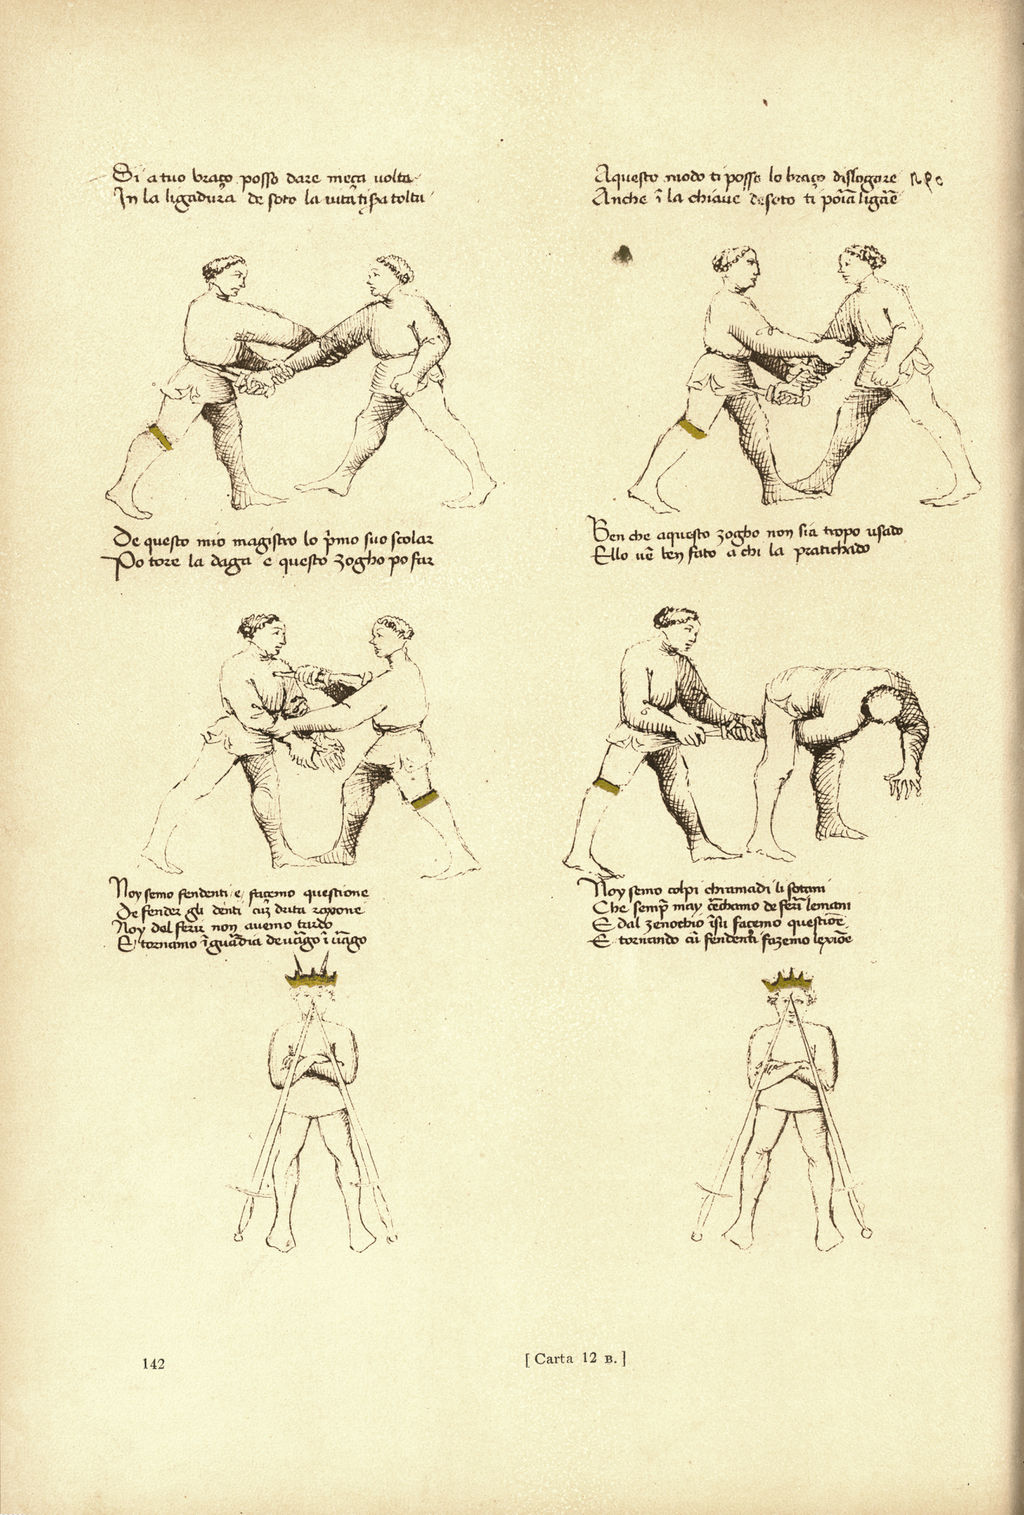 Si a tuo braço posso dare meça uolta
In la ligadura de soto la uita ti sra tolta
Aquesto modo ti posso lo braço dislogare
Anche ĩ la chiaue de soto ti poria ligare
De questo mio magistro lo p̃mo suo scolar
Po tore la daga e questo zogho po far
Ben che aquesto zogho non sia tropo usado
Ello uẽ ben fato a chi la pratichado
Noy semo fendenti e façemo questione
De fender gli denti cũ drita raxone
Noy del ferir non auemo tardo
E tornamo ĩ guardia de uargo ĩ uargo
Noy semo colpi chiamadi li sotani
Che semp̃ may çerchamo de ferir le mani
E dal zenochio ĩsu façemo questiõe
E tornando cũ fendenti fazemo lexiõe
142
[ Carta 12 B. ]